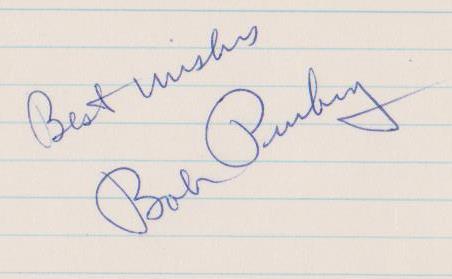 Best Wishes
Bob Purkey